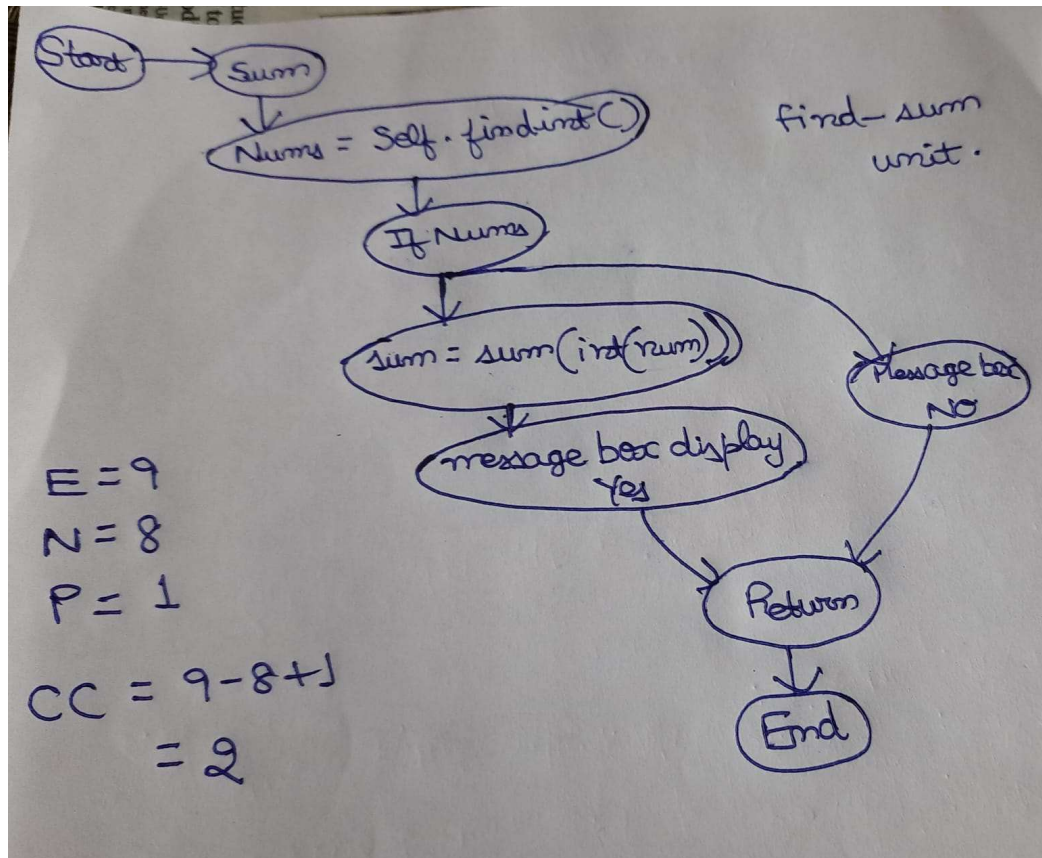 Start
Sum
Nums = Self.findint()
find-sum
unit.
If Nums
sum = sum(int(num))
Message box
NO
message box display
Yes
E = 9
N = 8
P = 1
Return
CC = 9-8+1
= 2
End